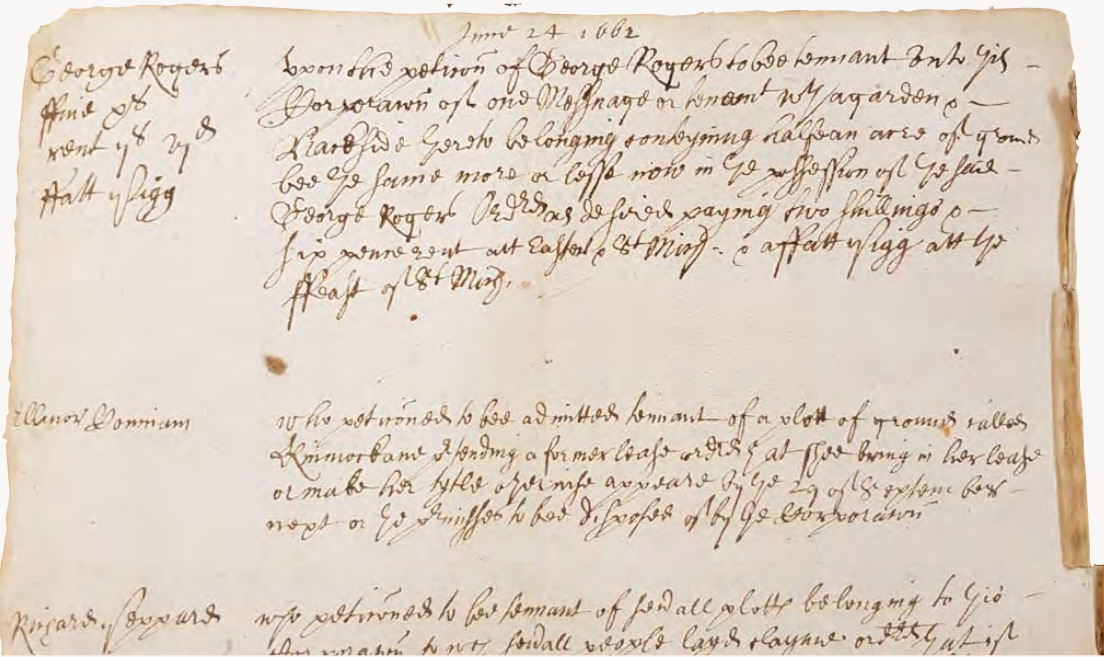 June 24 1662
George Rogers
ffine xs
rent ijs vjd
ffatt pigg
Upon the peticon of George Rogers to bee tennant unto this
Corporacon of one Messuage or tenemt wth a garden &
Backside thereto belonging conteyning halfe an acre of ground
bee the same more or lesse now in the possession of the said
George Rogers Ordred as desired paying two shillings &
six pence rent att Easter & St Mich: & a ffatt pigg att the
ffeast of St Mich.
Ellinor
who peticoned to bee admitted tennant of a plott of ground called
ptending a former lease ordred yt shee bring in her lease
or make her tytle otherwise appeare by the 29 of September
next or the pmisses to bee disposed of by the Corporacon
Richard Sheppard
who peticoned to bee tennant of sevall plotts belonging to this
Corporacon to wch sevall people layd clayme ordred that if